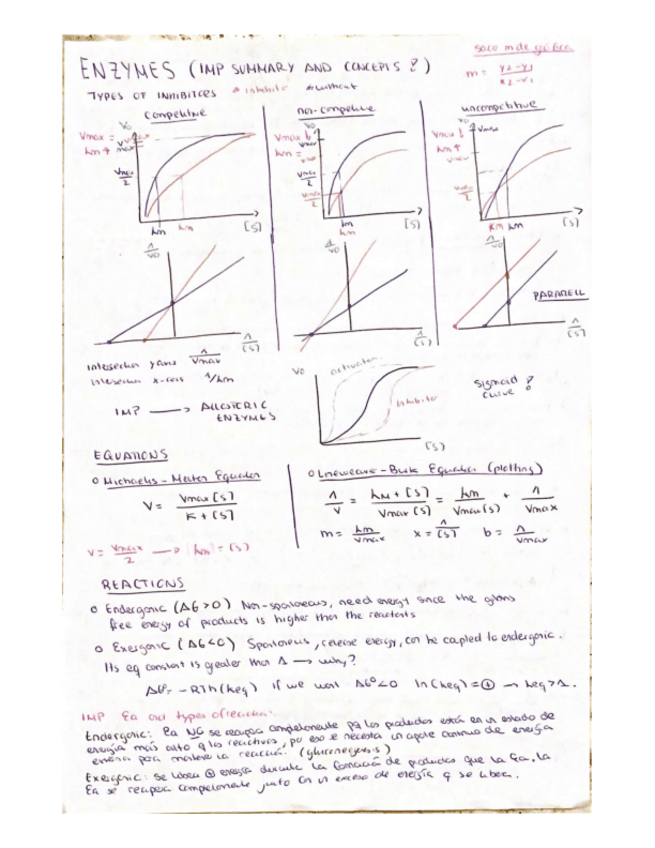 saco m de gráfica
m = y2-y1 / x2-x1
ENZYMES (IMP SUMMARY AND CONCEPTS !)
TYPES OF INHIBITORS * inhibitor * without
competitive
non-competitive
uncompetitive
Vmax =
km ↑
V0
Vmax
Vmax/2
km km
[S]
Vmax ↓
km =
V0
Vmax/2
Vmax/2
km
[S]
Vmax ↓
km ↓
V0
Vmax
Vmax/2
km km
[S]
1/V0
1/[S]
1/V0
1/[S]
1/V0
PARALELL
1/[S]
intersection y axis 1/Vmax
intersection x-axis 1/km
IMP → ALLOSTERIC ENZYMES
V0
activator
inhibitor
[S]
sigmoid curve !
EQUATIONS
o Michaelis-Menten Equation
V = Vmax [S] / K + [S]
V = Vmax/2 → |km| = [S]
o Lineweave-Burk Equation (plotting)
1/V = kM + [S] / Vmax [S] = km / Vmax [S] + 1/Vmax
m = km/Vmax x = 1/[S] b = 1/Vmax
REACTIONS
o Endergonic (ΔG>0) Non-spontaneous, need energy since the gibbs
free energy of products is higher than the reactants
o Exergonic (ΔG<0) Spontaneous, release energy, can be coupled to endergonic.
Its eq constant is greater than 1 → why?
ΔG°= -RTln(keq) if we want ΔG°<0 ln(keq) = ⊕ → keq>1.
IMP Ea and types of reaction:
Endergonic: Ea NO se recupera completamente pq los productos están en un estado de
energía más alto q los reactivos, por eso se necesita un aporte continuo de energía
externa para mantener la reacción. (gluconeogenesis)
Exergonic: Se libera ⊕ energía durante la formación de productos que la Ea, la
Ea se recupera completamente junto con un exceso de energía q se libera.